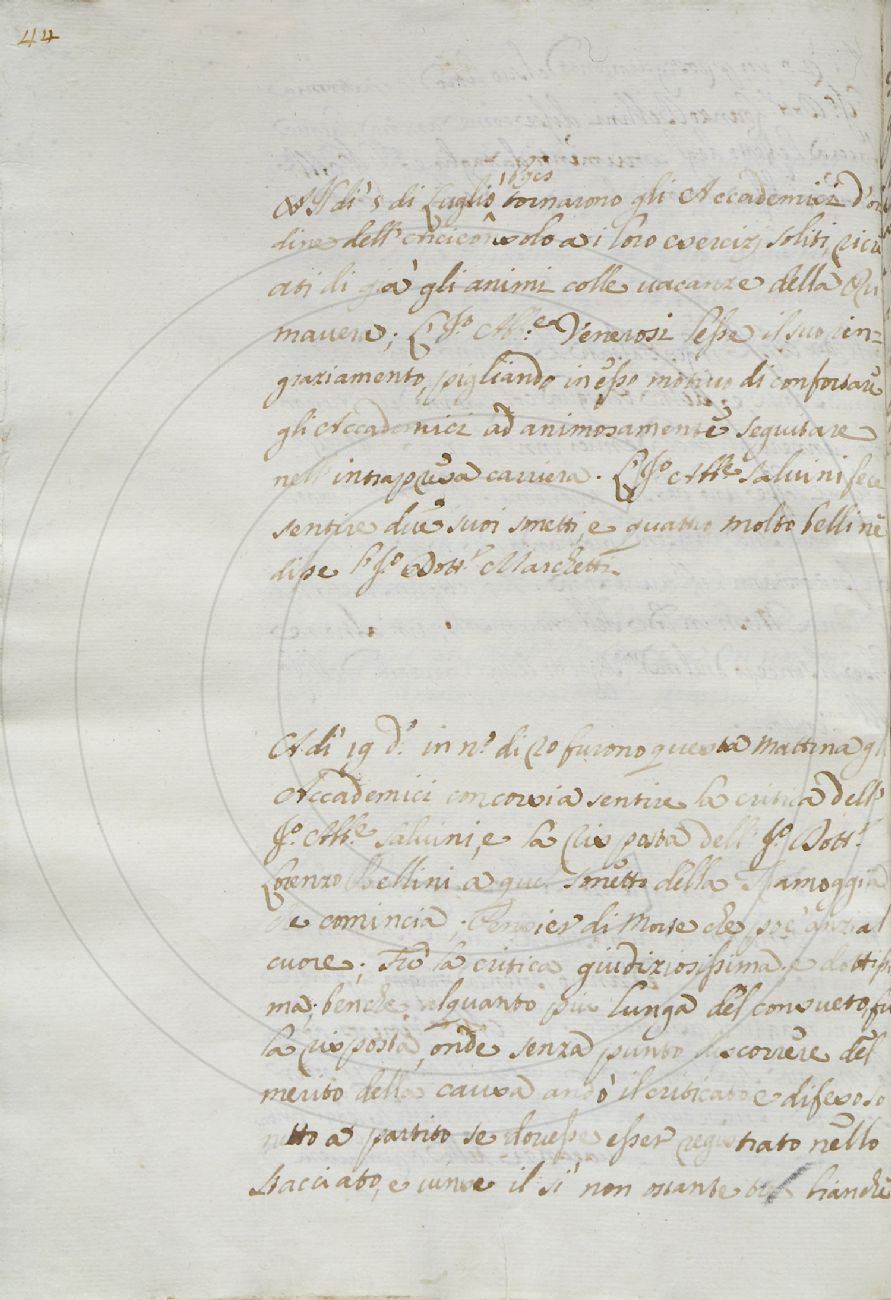 44
1705
A dì 5 di Luglio tornarono gli Accademici d'or
dine dell'Arciconsolo a i loro eserciz soliti, ricre
ati di già gli animi colle vacanze della Pri
mavera; L'Jo. Abb.e Venerosi lesse il suo rin=
graziamento, pigliando in esso motivo di confortare
gli Accademici ad animosamente seguitare
nell'intrapresa carriera. L'Jo. Abb.e Salvini fece
sentire due suoi sonetti, e quattro molto belli ne
disse l'Jo. Dott.r Marchetti.
A dì 19 d.o in n.o di 20 furono questa mattina gli
Accademici con corsia sentire la critica dell'
Jo. Abb.e Salvini, e la risposta dell'Jo. Dott.r
Lorenzo Bellini a quel sonetto della
che comincia, Pensier di Morte che
cuore; Fù la critica giudiziosissima e dottissi
ma, benche alquanto più lunga del consueto, fu
la risposta, onde senza punto discorrere del
merito della causa andò il criticato e difeso so
netto a partito se dovesse esser registrato nello
Stacciato, e vinse il sì non ostante tre bianche